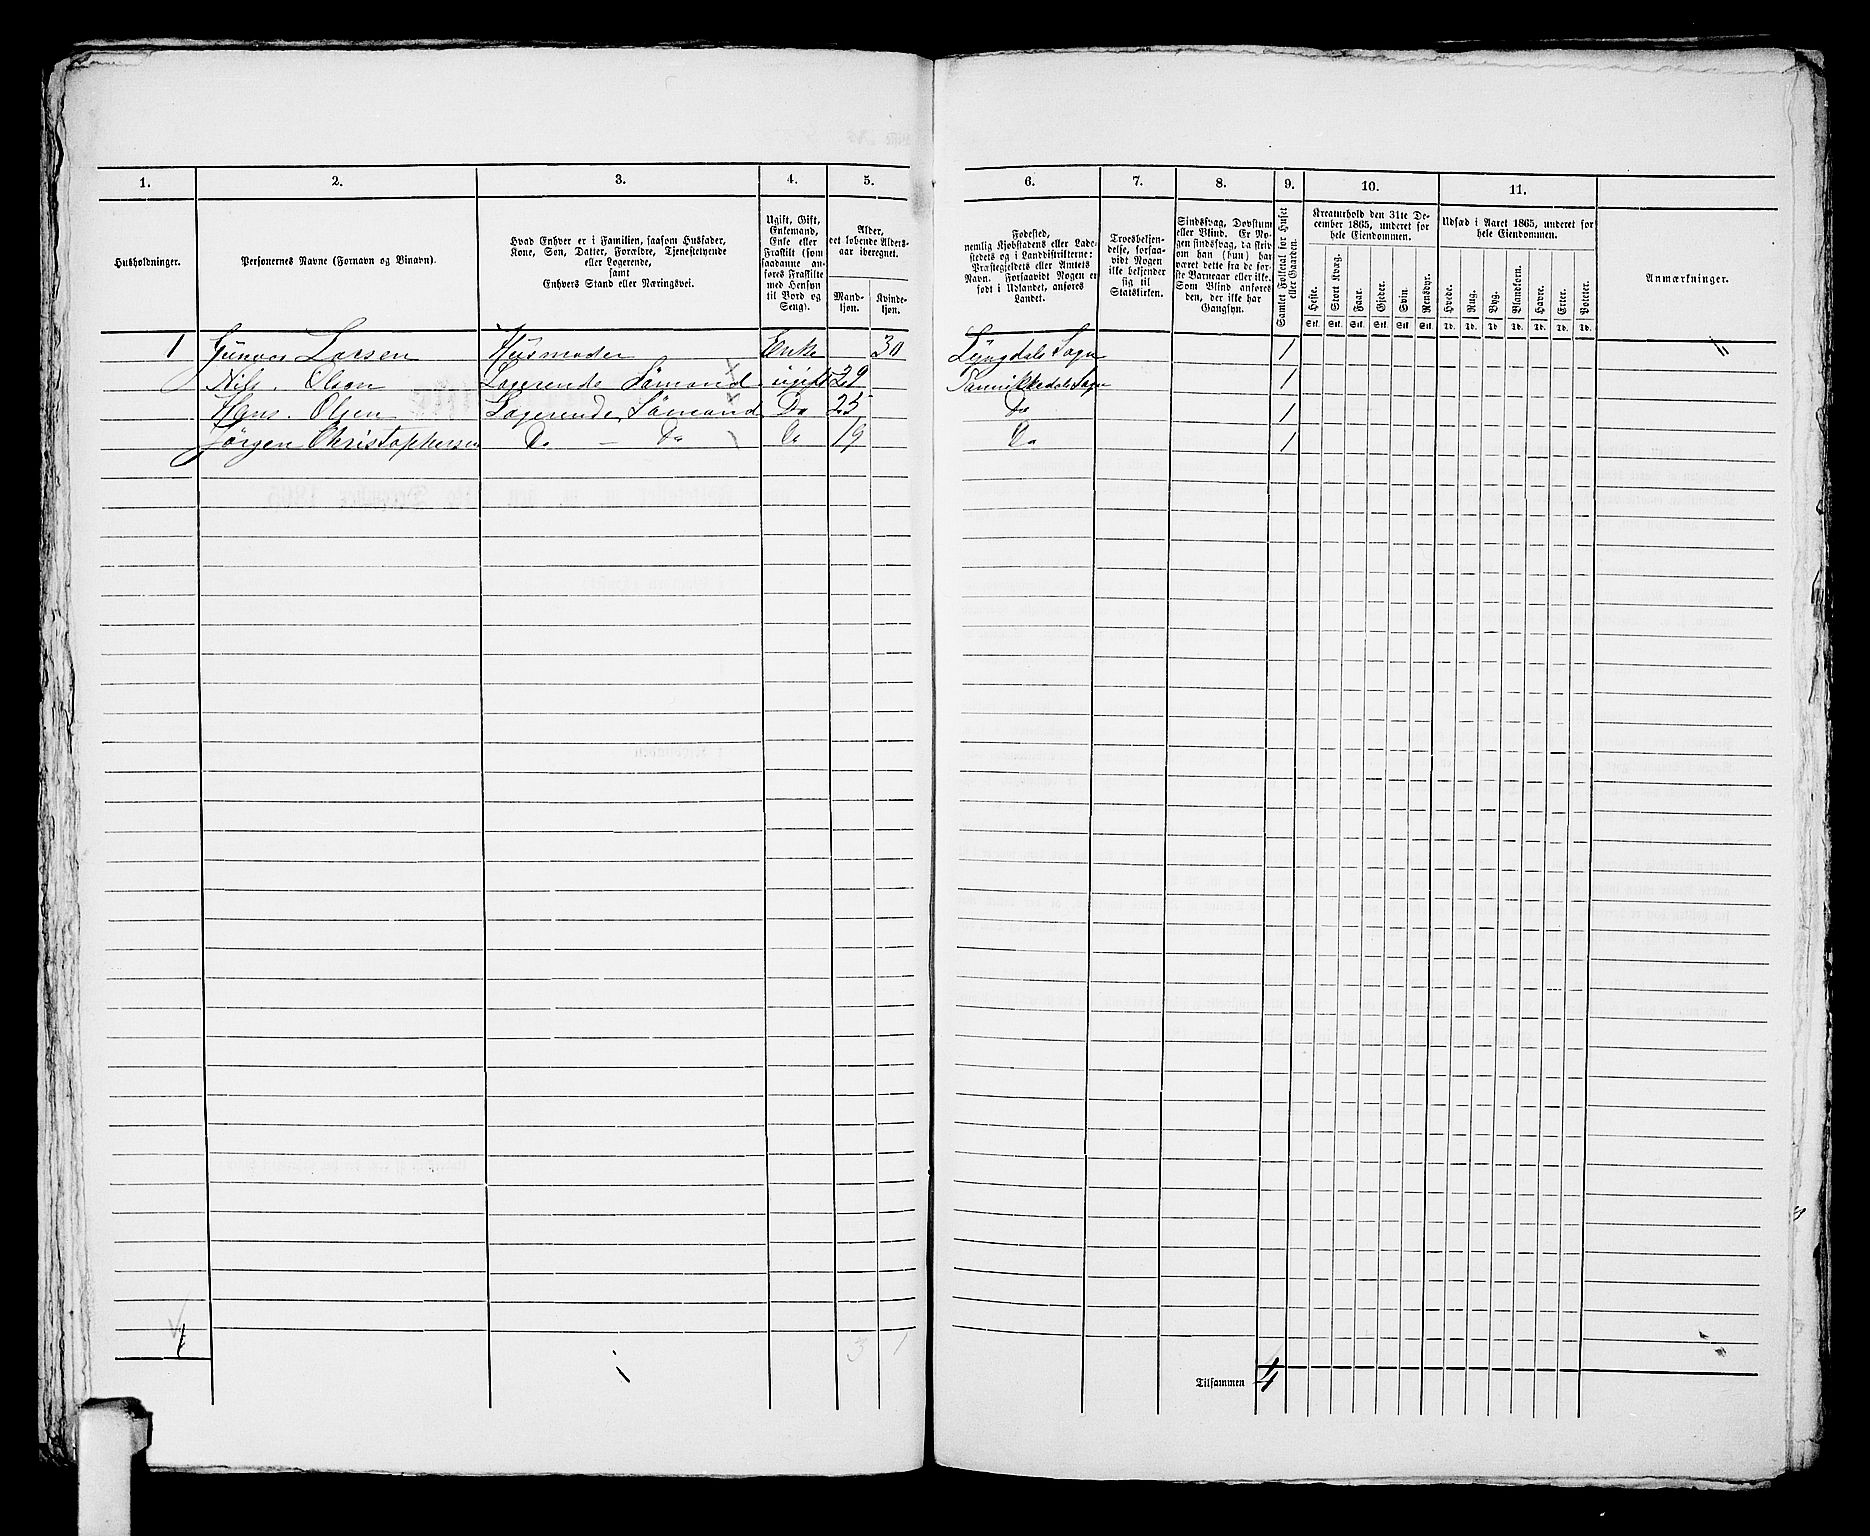 1. 2. 3. 4. 5. 6. 7. 8. 9. 10. 11.
Husholdninger.
Personernes Navne (Fornavn og Binavn).
Hvad Enhver er i Familien, saasom Husfader,
Kone, Søn, Datter, Forældre, Tjenestetyende
eller Logerende,
samt
Enhvers Stand eller Næringsvei.
Ugift, Gift,
Enkemand,
Enke eller
Fraskilt (som
saadanne an-
føres Fraskilte
med Hensyn
til Bord og
Seng).
Alder,
det løbende Alders-
aar iberegnet.
Mand-
kjøn.
Kvinde-
kjøn.
Fødested,
nemlig Kjøbstadens eller Lade-
stedets og i Landdistrikterne:
Præstegjeldets eller Amtets
Navn. Forsaavidt Nogen er
født i Udlandet, anføres
Landet.
Troesbekjen-
delse, forsaa-
vidt Nogen
ikke bekjender
sig til
Statskirken.
Sindssvag, Døvstum
eller Blind. Er No-
gen sindssvag, da skriv
om han (hun) har
været dette fra de før-
ste Barneaar eller ikke.
Som Blind anføres
den, der ikke har
Gangsyn.
Samlet Folketal for Huset
eller Gaarden.
Kreaturhold den 31te De-
cember 1865, underet for
hele Eiendommen.
Heste. Stort Kvæg. Faar. Gjeder. Svin. Rensdyr.
Stk. Stk. Stk. Stk. Stk. Stk.
Udsæd i Aaret 1865, underet for
hele Eiendommen.
Hvede. Rug. Byg. Blandkorn. Havre. Erter. Poteter.
Td. Td. Td. Td. Td. Td. Td.
Anmærkninger.
1 Gunvor Larsen Husmoder Enke 30 Lyngdals Sogn 1 "
Nils. Olsen Logerende Sømand ugift 29 Sannikkedals Sogn 1
Hans. Olsen Logerende Sømand Do 25 Do 1
Jørgen Christophersen Do - Do Do 19 Do 1
1 3 1
Tilsammen 4